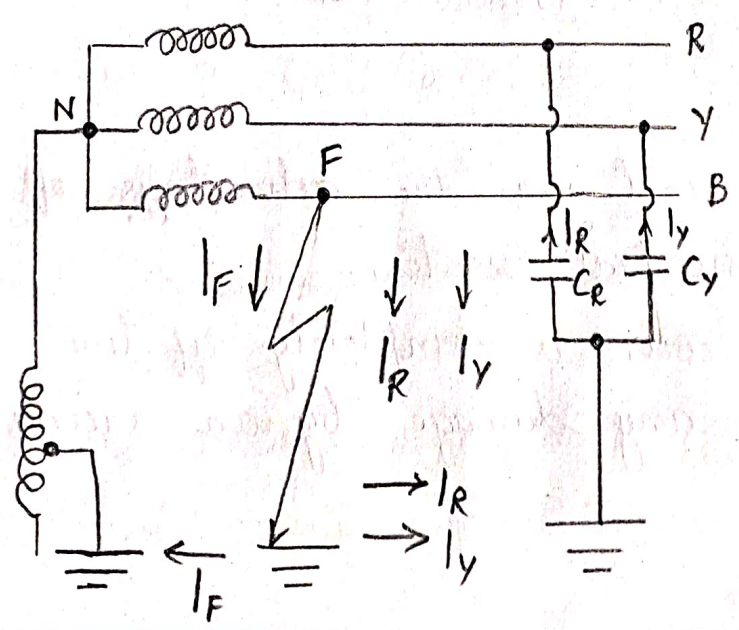 R
N
Y
F
B
I_R
I_Y
I_F
C_R
C_Y
I_R
I_Y
I_R
I_Y
I_F